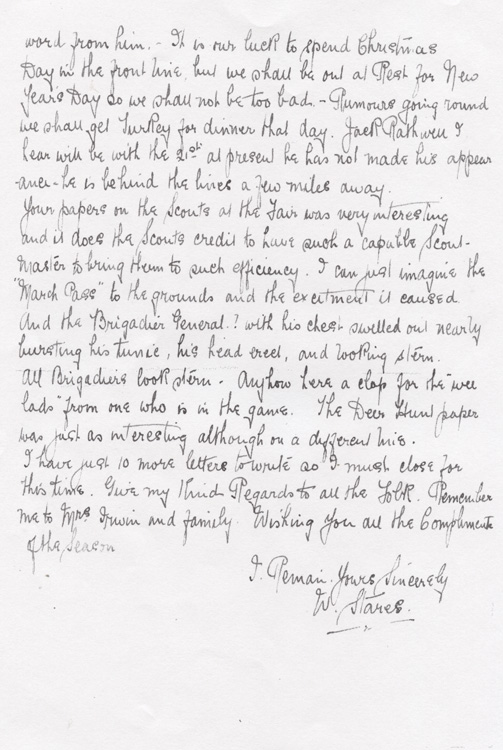 word from him. - It is our luck to spend Christmas
Day in the front line, but we shall be out at Rest for New
Year's Day so we shall not be too bad. - Rumours going round
we shall get Turkey for dinner that day. Jack Rathwell I
hear will be with the 21st at present he has not made his appear
-ance - he is behind the lines a few miles away.
Your papers on the Scouts at the Fair was very interesting
and it does the Scouts credit to have such a capable Scout-
Master to bring them to such efficiency. I can just imagine the
"March Pass" to the grounds and the excitment it caused
And the Brigadier General.? with his chest swelled out nearly
bursting his tunic, his head erect, and looking stern.
All Brigadiers look stern - Anyhow here a clap for the "wee
lads" from one who is in the game. The Deer Hunt paper
was just as interesting although on a different line.
I have just 10 more letters to write so I must close for
this time. Give my Kind Regards to all the Folk. Remember
me to Mrs. Irwin and family. Wishing you all the Compliments
of the Season
I. Remain. Yours Sincerely
W. Stares.